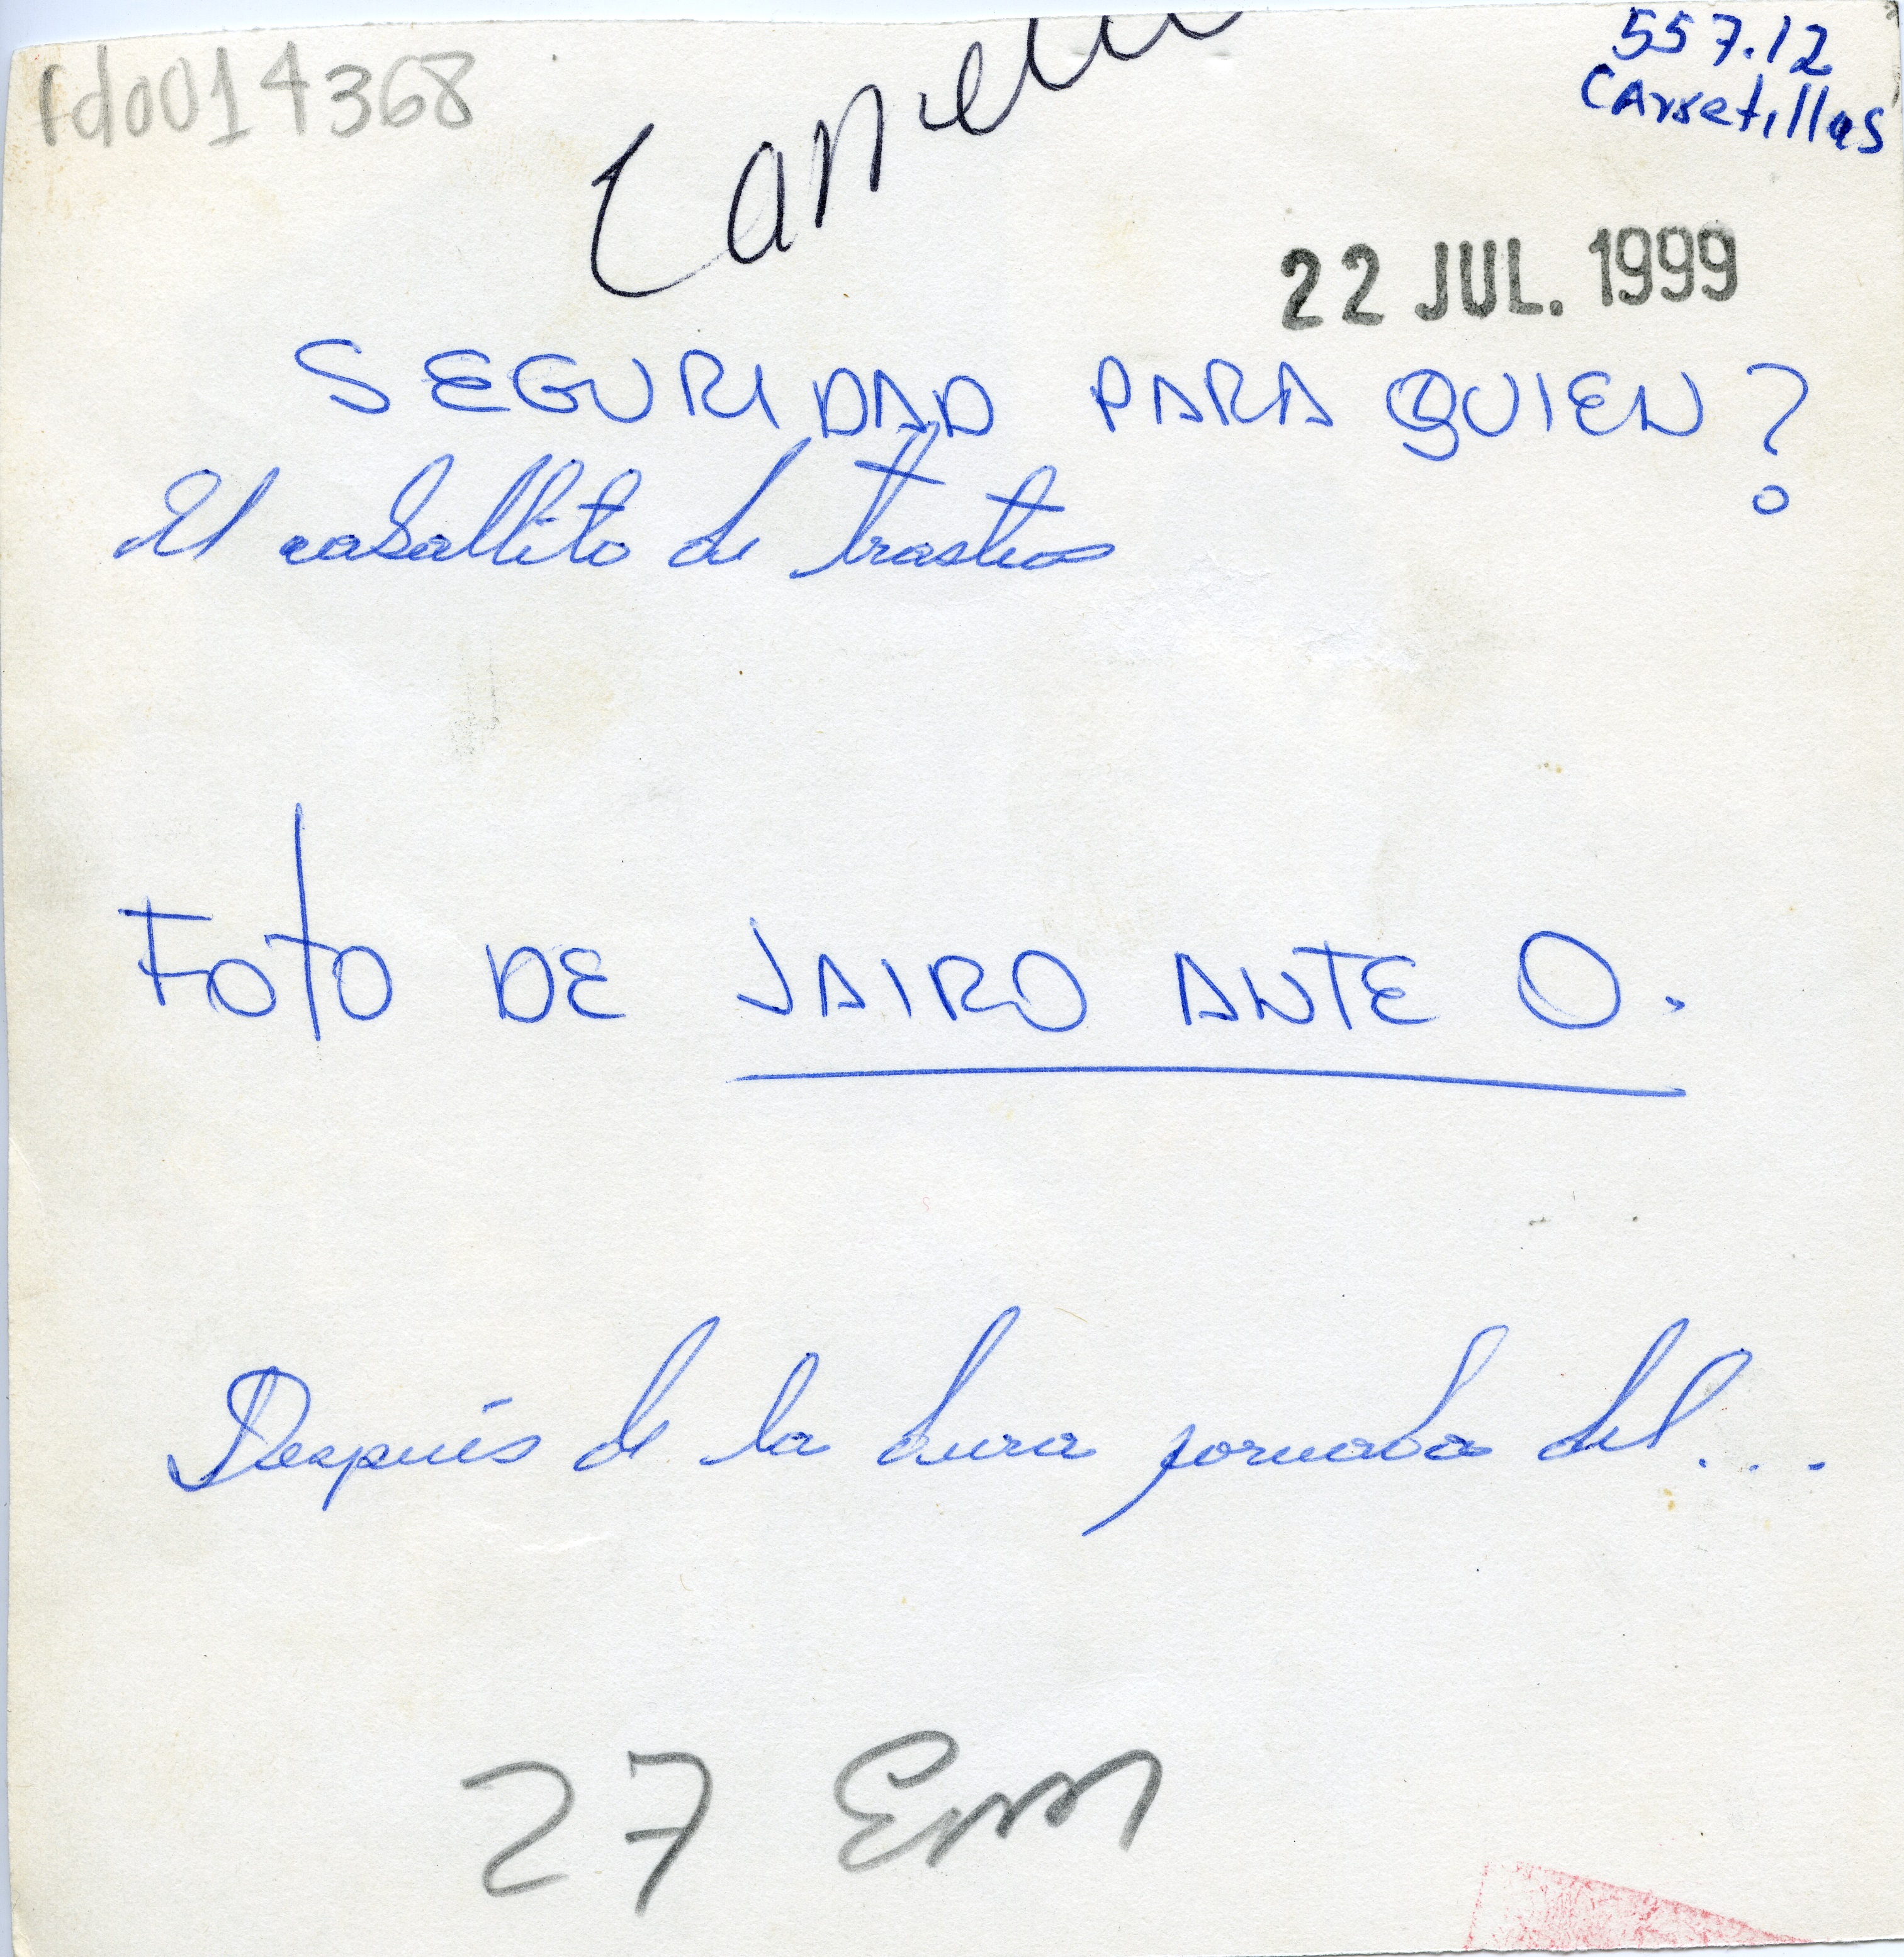 fd0014368
557.12
CArretillas
22 JUL. 1999
SEGURIDAD PARA QUIEN?
El caballito de trasteos
FOTO DE JAIRO ANTE O.
Después de la dura jornada del...
27